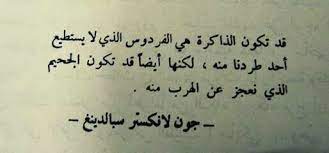 قد تكون الذاكرة هي الفردوس الذي لا يستطيع
أحد طردنا منه ، لكنها أيضاً قد تكون الجحيم
الذي نعجز عن الهرب منه .
ــ جون لانكستر سبالدينغ ــ